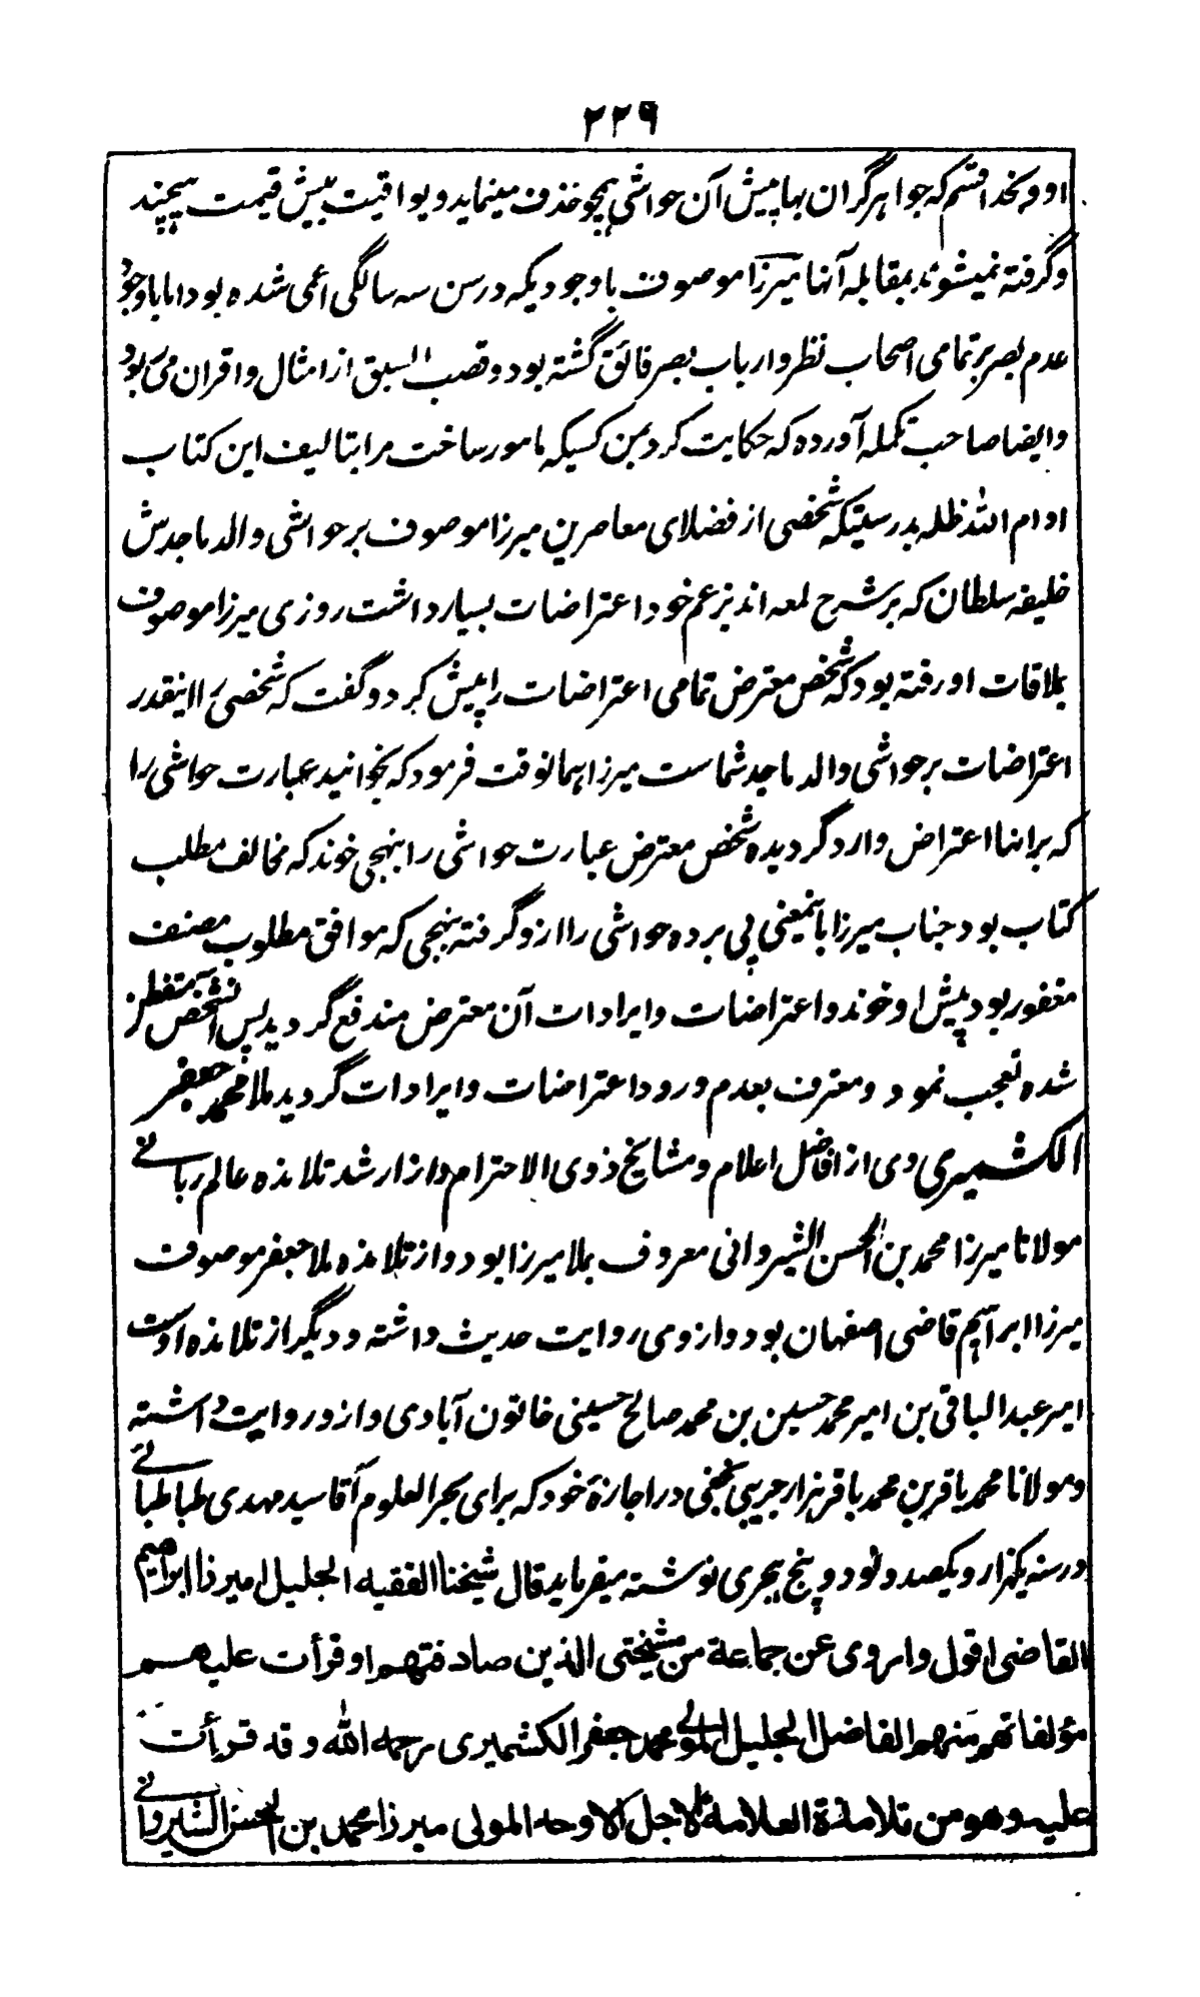 ۲۲۹
او و بخدا قسم که جواهر گران بها پیش آن حواشی همچو خذف مینماید و یواقیت بیش قیمت بهیچ
و گرفته نمیشوند بمقابله آنها میرزا موصوف باوجودیکه در سن سه سالگی اعمی شده بود اما باوجود
عدم بصر بر تمامی اصحاب نظر و ارباب بصر فائق گشته بود و قصب السبق از امثال و اقران می ربود
و ایضا صاحب تکمله آورده که حکایت کرد بمن کسیکه مامور ساخت مرا بتالیف این کتاب
ادام الله ظله بدرستیکه شخصی از فضلای معاصرین میرزا موصوف بر حواشی والد ماجدش
خلیفه سلطان که بر شرح لمعه اند بزعم خود اعتراضات بسیار داشت روزی میرزا موصوف
بملاقات او رفته بود که شخص معترض تمامی اعتراضات را پیش کرد و گفت که شخصی را اینقدر
اعتراضات بر حواشی والد ماجد شماست میرزا همانوقت فرمود که بخوانید عبارت حواشی را
که بر انها اعتراض وارد گردیده شخص معترض عبارت حواشی را بنهجی خوند که مخالف مطلب
کتاب بود جناب میرزا باینمعنی پی برده حواشی را ازو گرفته بنهجی که موافق مطلوب مصنف
مغفور بود پیش او خوند و اعتراضات و ایرادات آن معترض مندفع گردید پس آنشخص متفطن
شده تعجب نمود و معترف بعدم ورود اعتراضات و ایرادات گردید ملا محمد جعفر
الکشمیری وی از افاضل اعلام و مشایخ ذوی الاحترام و از ارشد تلامذه عالم ربانے
مولانا میرزا محمد بن الحسن الشیروانی معروف بملا میرزا بود و از تلامذه ملا جعفر موصوف
میرزا ابراهیم قاضی اصفهان بود و از وی روایت حدیث داشته و دیگر از تلامذه اوست
امیر عبد الباقی بن امیر محمد حسین بن محمد صالح حسینی خاتون آبادی و ازو روایت داشته
و مولانا محمد باقر بن محمد باقر هزار جریبی نجفی در اجازهٔ خود که برای بحر العلوم آقا سید مهدی طباطبائے
در سنه یکهزار و یکصد و نود و پنج هجری نوشته میفرماید قال شیخنا الفقیه الجلیل امیرزا ابراهیم
القاضی اقول و اروی عن جماعة من مشیختی الذین صادفتهم او قرأت علیهم
مؤلفاتهم منهم الفاضل الجلیل المولے محمد جعفر الکشمیری رحمه الله و قد قرأت
علیه وهو من تلامذة العلامة الاجل الاوحد المولی میرزا محمد بن الحسن الشیروانے